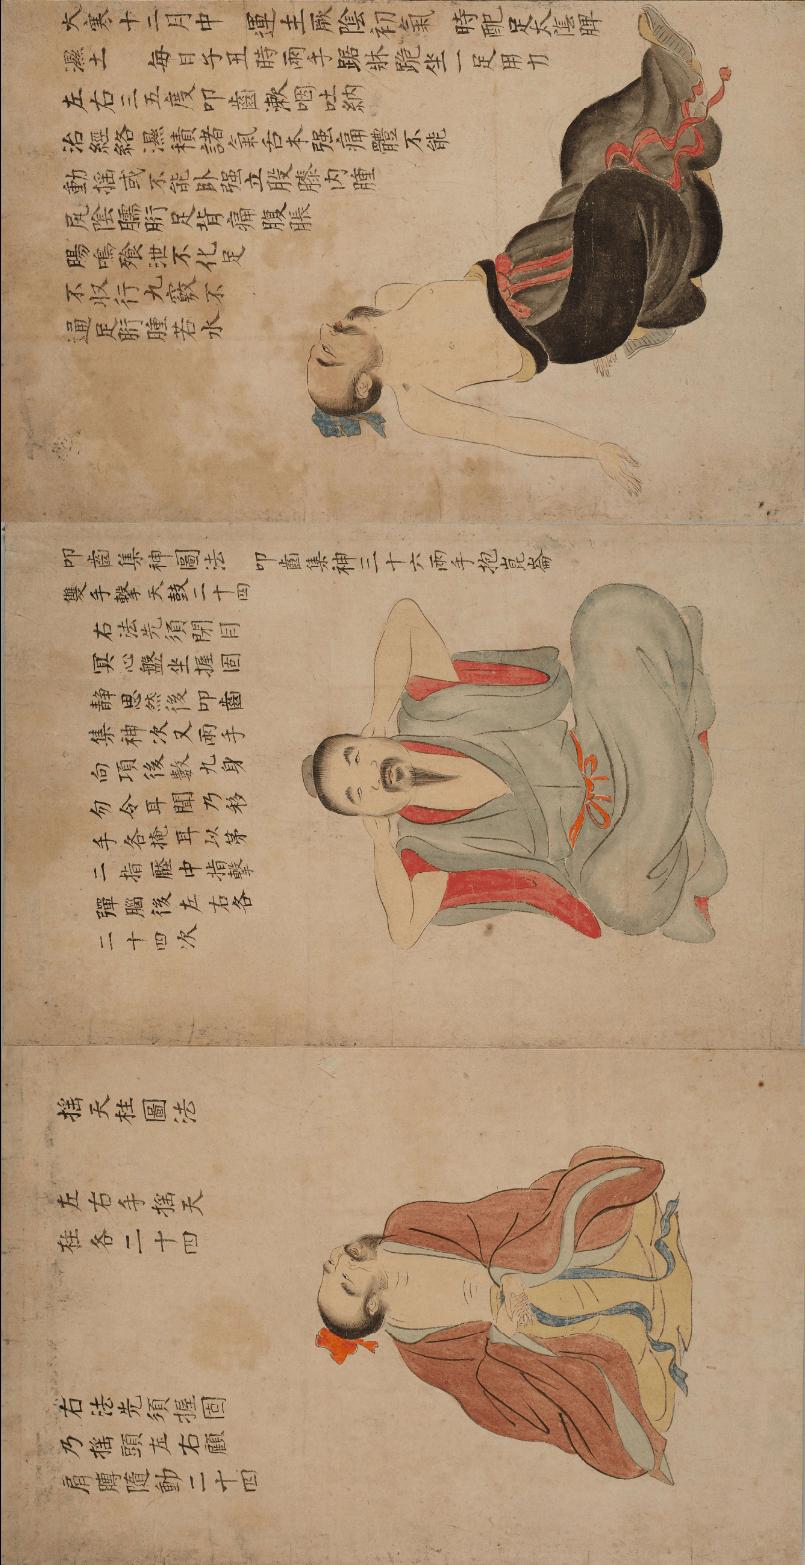 大寒十二月中 運主厥陰初氣 時配足太陰脾
濕土 每日子丑時兩手踞牀跪坐一足用力
左右三五度叩齒漱咽吐納
治經絡濕積諸氣舌本强痛體不能
動摇或不能卧强立股膝内腫
尻陰臑胻足背痛腹脹
腸鳴飱泄不化足
不収行九竅不
通足胻腫若水
叩齒集神圖法 叩齒集神三十六兩手抱崑崙
雙手擊天鼓二十四
右法先須閉目
冥心盤坐握固
静思然後叩齒
集神次叉兩手
向項後數九身
勿令耳聞乃移
手各掩耳以苐
二指壓中指擊
彈腦後左右各
二十四次
摇天柱圖法
左右手摇天
柱各二十四
右法先須握固
乃摇頭左右顧
肩膊隨動二十四